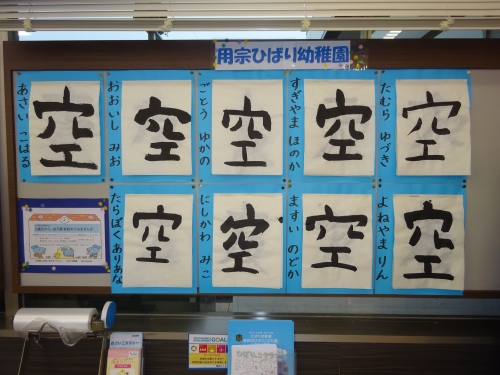 用宗ひばり幼稚園
空
あさい こはる
空
おおいし みお
空
ごとう ゆかの
空
すぎやま ほのか
空
たむら ゆづき
空
たらぼく ありあな
空
にしかわ みこ
空
ますい のどか
空
よねやま りん
GOALS